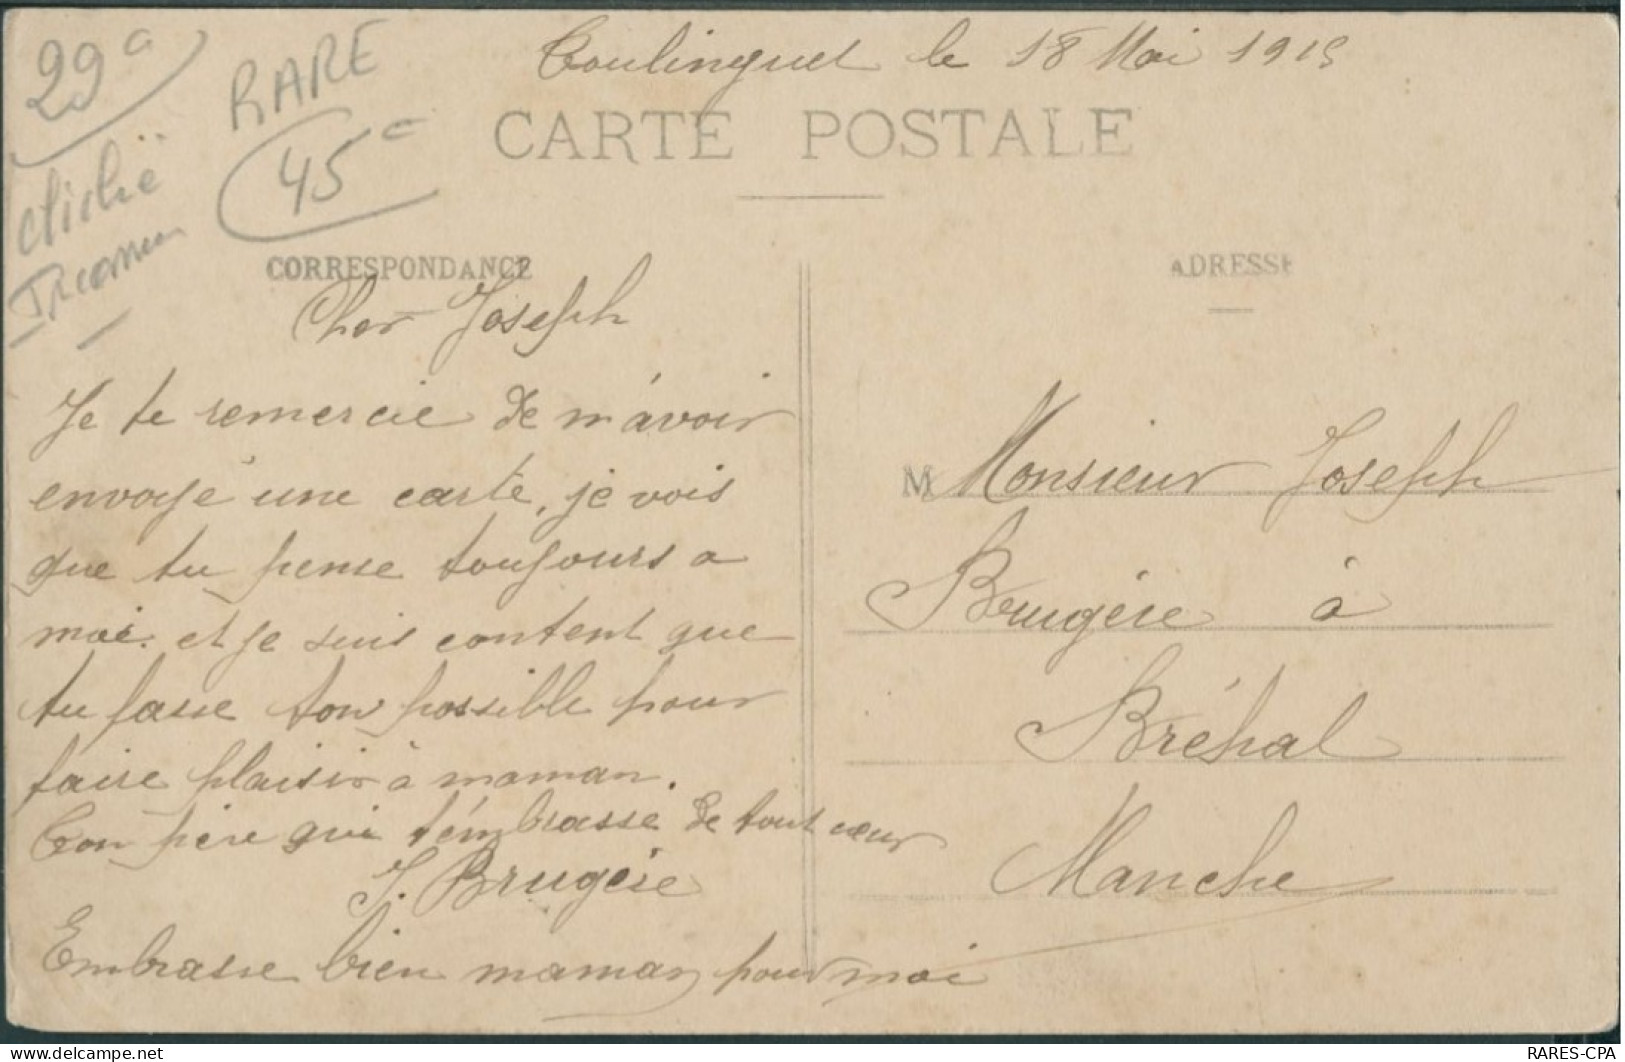 29 c
RARE
45 c
cliché
Inconnu
Toulinguet le 18 Mai 1915
CARTE POSTALE
CORRESPONDANCE
ADRESSE
Cher Joseph
Je te remercie de m'avoir
envoyé une carte, je vois
que tu pense toujours a
moi. et je suis content que
tu fasse ton possible pour
faire plaisir à maman.
Ton père qui t'émbrasse de tout cœur
J. Brugére
Embrasse bien maman pour moi
M Monsieur Joseph
Brugére à
Bréhal
Manche
RARES-CPA